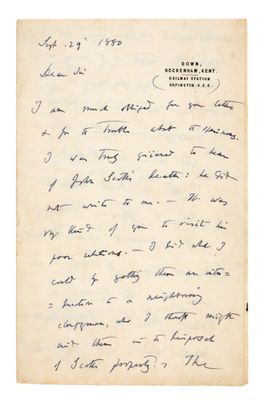 Sept. 29' 1880
DOWN,
BECKENHAM, KENT.
RAILWAY STATION
ORPINGTON. S.E.R.
Dear Sir
I am much obliged for your letter
& for the trouble about the specimens.
I was truly grieved to hear
of John Scott's death: he did
not write to me. — It was
very kind of you to visit his
poor relations. — I did what I
could by getting them an intro=
=duction to a neighbouring
clergyman, who I thought might
aid them in the disposal
of Scott's property. The